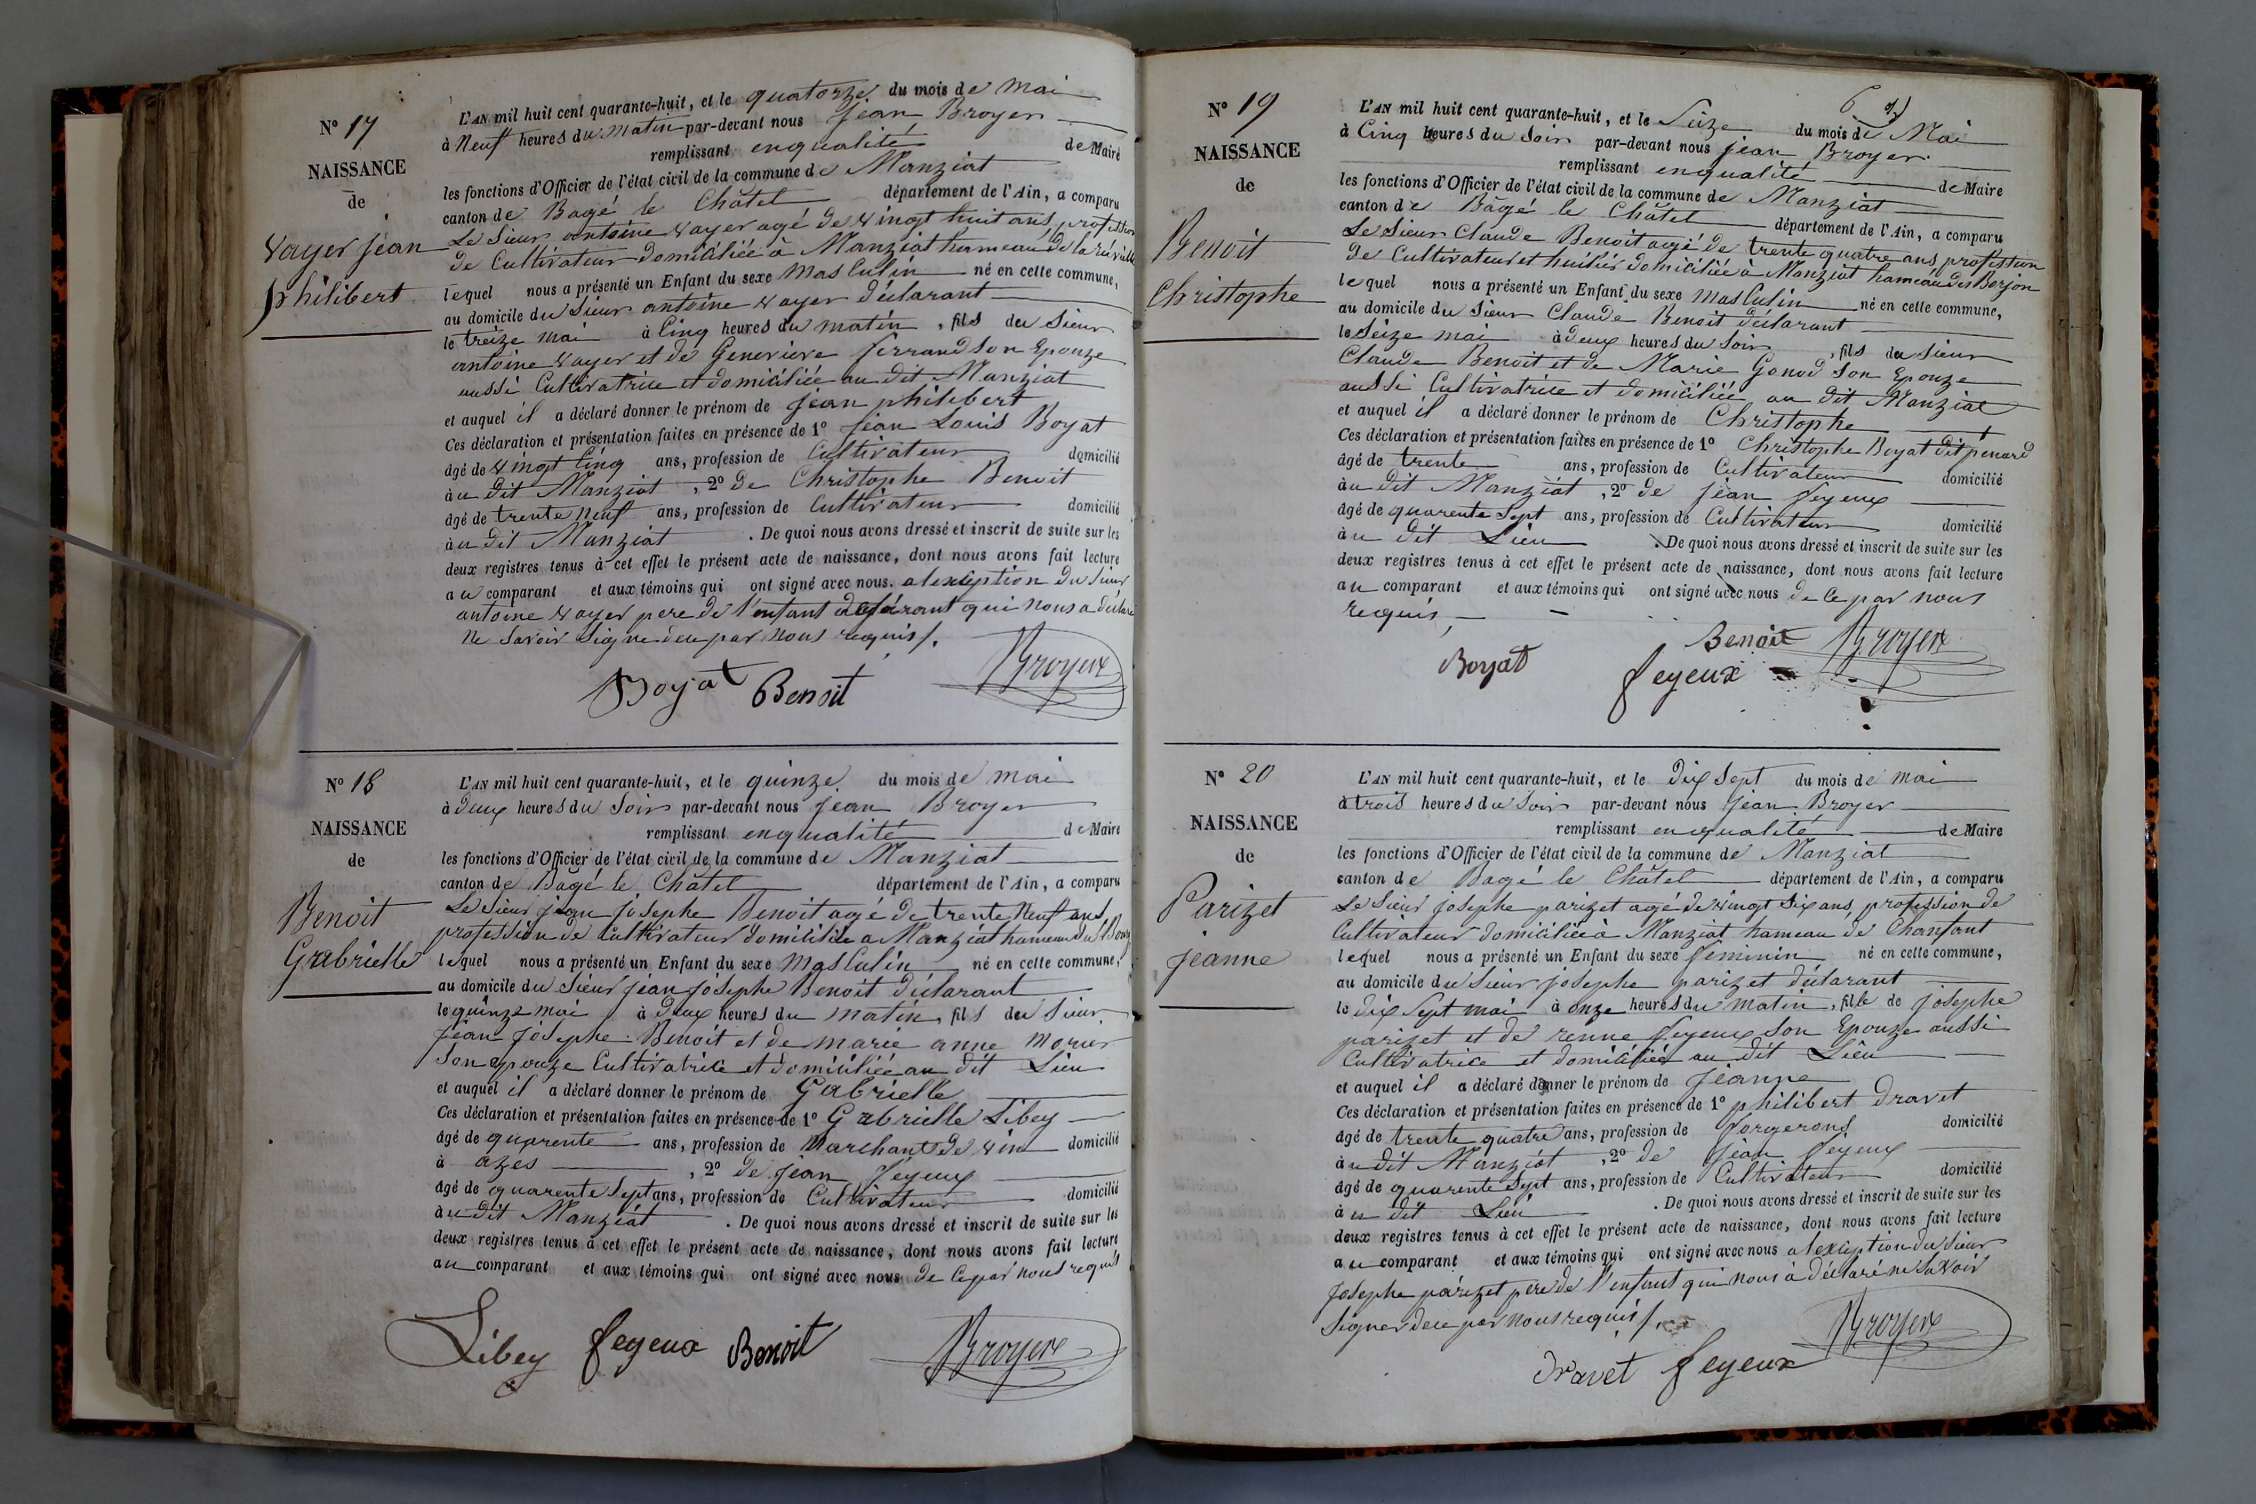 N° 17
NAISSANCE
de
Vayer jean
philibert
L'AN mil huit cent quarante-huit, et le quatorze du mois de mai
à Neuf heures du matin par-devant nous jean Broyer
remplissant enqualité de Maire
les fonctions d'Officier de l'état civil de la commune de Manziat
canton de Bagé le Châtel département de l'Ain, a comparu
Le Sieur antoine Vayer agé de vingt huit ans, profession
de Cultivateur domiciliée à Manziat hameau de la
lequel nous a présenté un Enfant du sexe masculin né en cette commune,
au domicile du Sieur antoine Vayer déclarant
le treize mai à cinq heures du matin, fils du Sieur
antoine Vayer et de Genevieve ferrand son Epouze
aussi Cultivatrice et domiciliée au dit Manziat
et auquel il a déclaré donner le prénom de jean philibert
Ces déclaration et présentation faites en présence de 1° jean Louis Boyat
âgé de vingt cinq ans, profession de Cultivateur domicilié
àu dit Manziat, 2° de Christophe Benoit
âgé de trente neuf ans, profession de Cultivateur domicilié
àu dit Manziat. De quoi nous avons dressé et inscrit de suite sur les
deux registres tenus à cet effet le présent acte de naissance, dont nous avons fait lecture
au comparant et aux témoins qui ont signé avec nous. alexception du Sieur
antoine Vayer pere de l'enfant qui nous a déclaré
ne savoir signe dece par nous requis /.
Boyat Benoit Broyer
N° 18
NAISSANCE
de
Benoit
Gabrielle
L'AN mil huit cent quarante-huit, et le quinze du mois de mai
à deux heures du Soir par-devant nous jean Broyer
remplissant enqualité de Maire
les fonctions d'Officier de l'état civil de la commune de Manziat
canton de Bagé le Châtel département de l'Ain, a comparu
Le Sieur jean josephe Benoit agé de trente Neuf ans
profession de Cultivateur domiciliée a Manziat hameau du Bourg
lequel nous a présenté un Enfant du sexe Masculin né en cette commune,
au domicile du Sieur jean josephe Benoit déclarant
le quinze mai à deux heures du matin, fils du Sieur
jean josephe Benoit et de marie anne morier
son epouze Cultivatrice et domiciliée au dit Lieu
et auquel il a déclaré donner le prénom de Gabrielle
Ces déclaration et présentation faites en présence de 1° Gabrielle Libey
âgé de quarente ans, profession de Marchant de vin domicilié
à azes, 2° de jean feyeux
âgé de quarente Sept ans, profession de Cultivateur domicilié
àu dit Manziat. De quoi nous avons dressé et inscrit de suite sur les
deux registres tenus à cet effet le présent acte de naissance, dont nous avons fait lecture
au comparant et aux témoins qui ont signé avec nous de ce par nous requis
Libey feyeux Benoit Broyer
6
N° 19
NAISSANCE
de
Benoit
Christophe
L'AN mil huit cent quarante-huit, et le Seize du mois de Mai
à Cinq heures du Soir par-devant nous jean Broyer
remplissant enqualité de Maire
les fonctions d'Officier de l'état civil de la commune de Manziat
canton de Bagé le Châtel département de l'Ain, a comparu
Le Sieur Claude Benoit agé de trente quatre ans profession
de Cultivateur et huilier domiciliée à Manziat hameau des Borjon
lequel nous a présenté un Enfant du sexe masculin né en cette commune,
au domicile du Sieur Claude Benoit déclarant
le Seize mai à deux heures du Soir, fils du Sieur
Claude Benoit et de Marie Gonod son Epouze
aussi Cultivatrice et domiciliée au dit Manziat
et auquel il a déclaré donner le prénom de Christophe
Ces déclaration et présentation faites en présence de 1° Christophe Boyat dit penard
âgé de trente ans, profession de Cultivateur domicilié
àu dit Manziat, 2° de jean feyeux
âgé de quarente Sept ans, profession de Cultivateur domicilié
àu dit Lieu. De quoi nous avons dressé et inscrit de suite sur les
deux registres tenus à cet effet le présent acte de naissance, dont nous avons fait lecture
au comparant et aux témoins qui ont signé avec nous de ce par nous
requis
Boyat Benoit feyeux Broyer
N° 20
NAISSANCE
de
Parizet
jeanne
L'AN mil huit cent quarante-huit, et le dix Sept du mois de mai
à trois heures du Soir par-devant nous jean Broyer
remplissant enqualité de Maire
les fonctions d'Officier de l'état civil de la commune de Manziat
canton de Bagé le Châtel département de l'Ain, a comparu
Le Sieur josephe parizet agé de vingt six ans, profession de
Cultivateur domiciliée a Manziat hameau de Chanfant
lequel nous a présenté un Enfant du sexe feminin né en cette commune,
au domicile du Sieur josephe parizet déclarant
le dix Sept mai à onze heures du matin, fille de josephe
parizet et de renne feyeux son Epouze aussi
Cultivatrice et domiciliée au dit Lieu
et auquel il a déclaré donner le prénom de jeanne
Ces déclaration et présentation faites en présence de 1° philibert Dravet
âgé de trente quatre ans, profession de forgerons domicilié
àu dit Manziat, 2° de jean feyeux
âgé de quarente Sept ans, profession de Cultivateur domicilié
àu dit Lieu. De quoi nous avons dressé et inscrit de suite sur les
deux registres tenus à cet effet le présent acte de naissance, dont nous avons fait lecture
au comparant et aux témoins qui ont signé avec nous alexception du Sieur
josephe parizet pere de l'enfant qui nous à déclaré ne savoir
signer dece par nous requis /.
Dravet feyeux Broyer